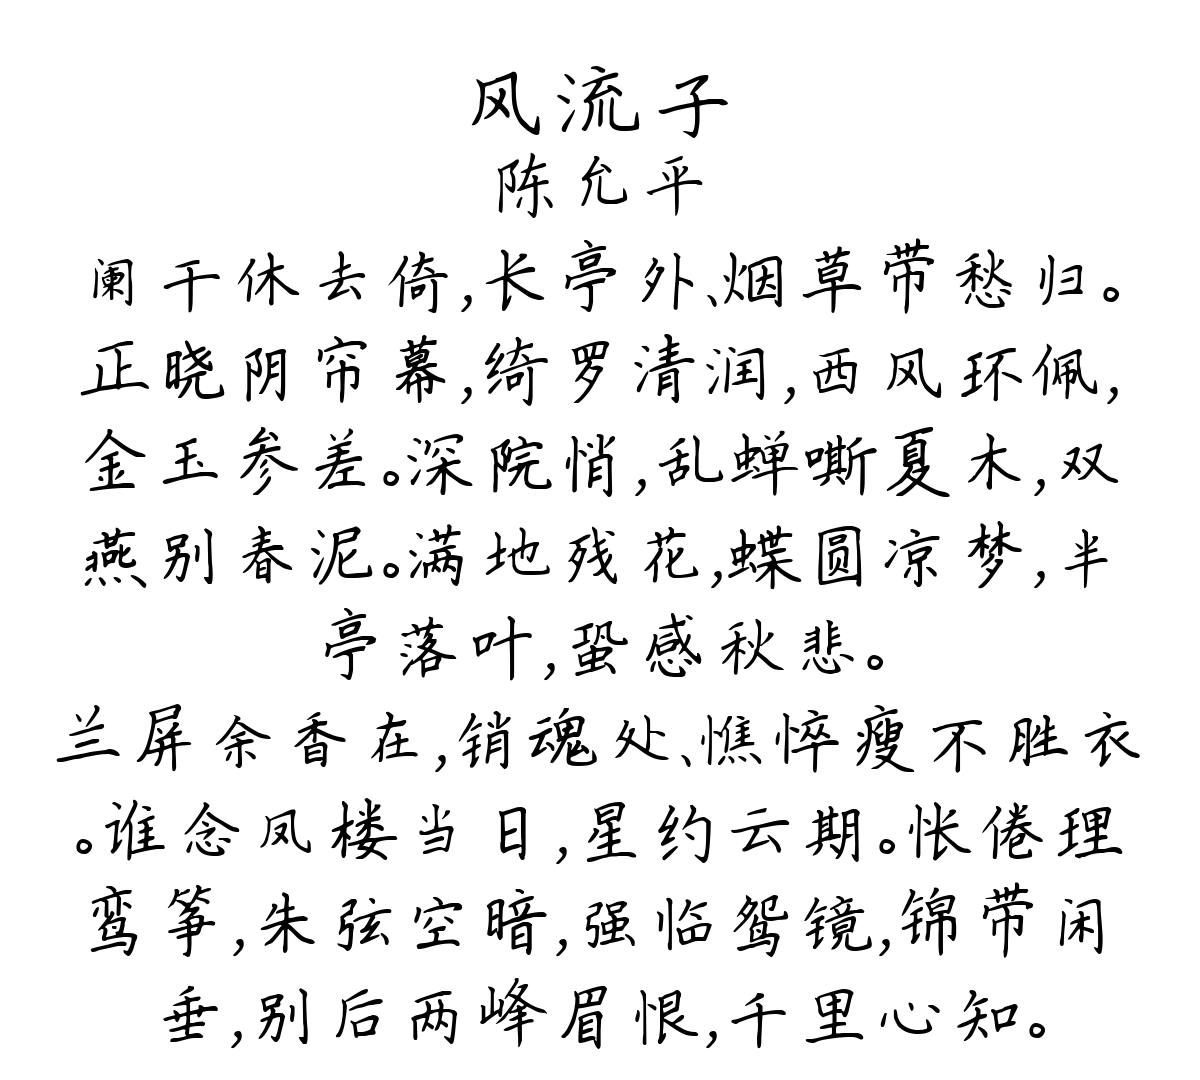 风流子
陈允平
阑干休去倚,长亭外、烟草带愁归。
正晓阴帘幕,绮罗清润,西风环佩,
金玉参差。深院悄,乱蝉嘶夏木,双
燕别春泥。满地残花,蝶圆凉梦,半
亭落叶,蛩感秋悲。
兰屏余香在,销魂处、憔悴瘦不胜衣
。谁念凤楼当日,星约云期。怅倦理
鸾筝,朱弦空暗,强临鸳镜,锦带闲
垂,别后两峰眉恨,千里心知。